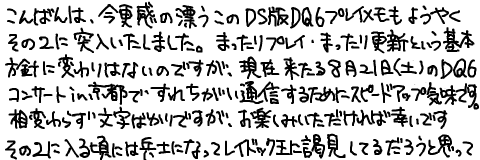 こんばんは、今更感の漂うこのDS版DQ6プレイメモもようやく
その2に突入いたしました。まったりプレイ・まったり更新という基本
方針に変わりはないのですが、現在来たる8月21日(土)のDQ6
コンサートin京都ですれちがい通信するためにスピードアップ気味です。
相変わらず文字ばかりですが、お楽しみいただければ幸いです
その2に入る頃には兵士になってレイドック王に謁見してるだろうと思って